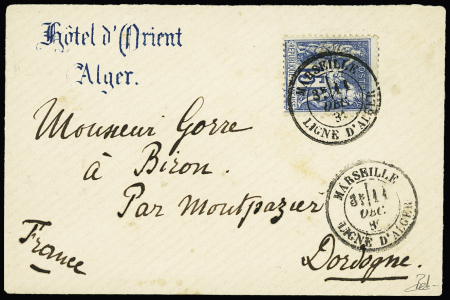 Hôtel d'Orient
Alger.
MARSEILLE
DEC
LIGNE D'ALGER
Monsieur Gorre
à Biron.
Par Montpazier
Dordogne.
France
MARSEILLE
DEC
LIGNE D'ALGER